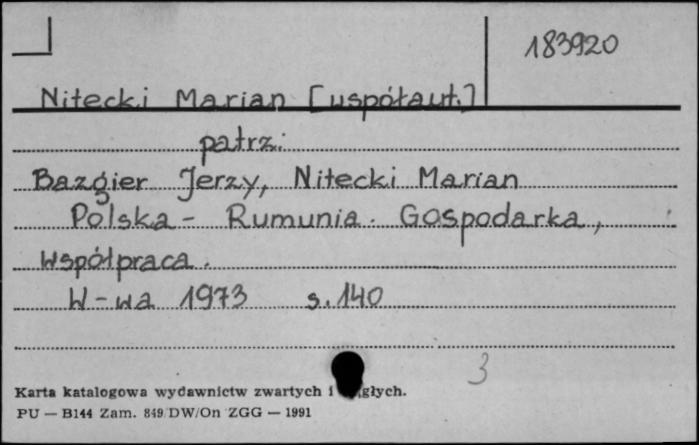 183920
Nitecki Marian [współaut.]
patrz:
Bazgier Jerzy, Nitecki Marian
Polska - Rumunia. Gospodarka,
współpraca.
W-wa 1973 s. 140
3
Karta katalogowa wydawnictw zwartych i głych.
PU — B144 Zam. 849/DW/On ZGG — 1991